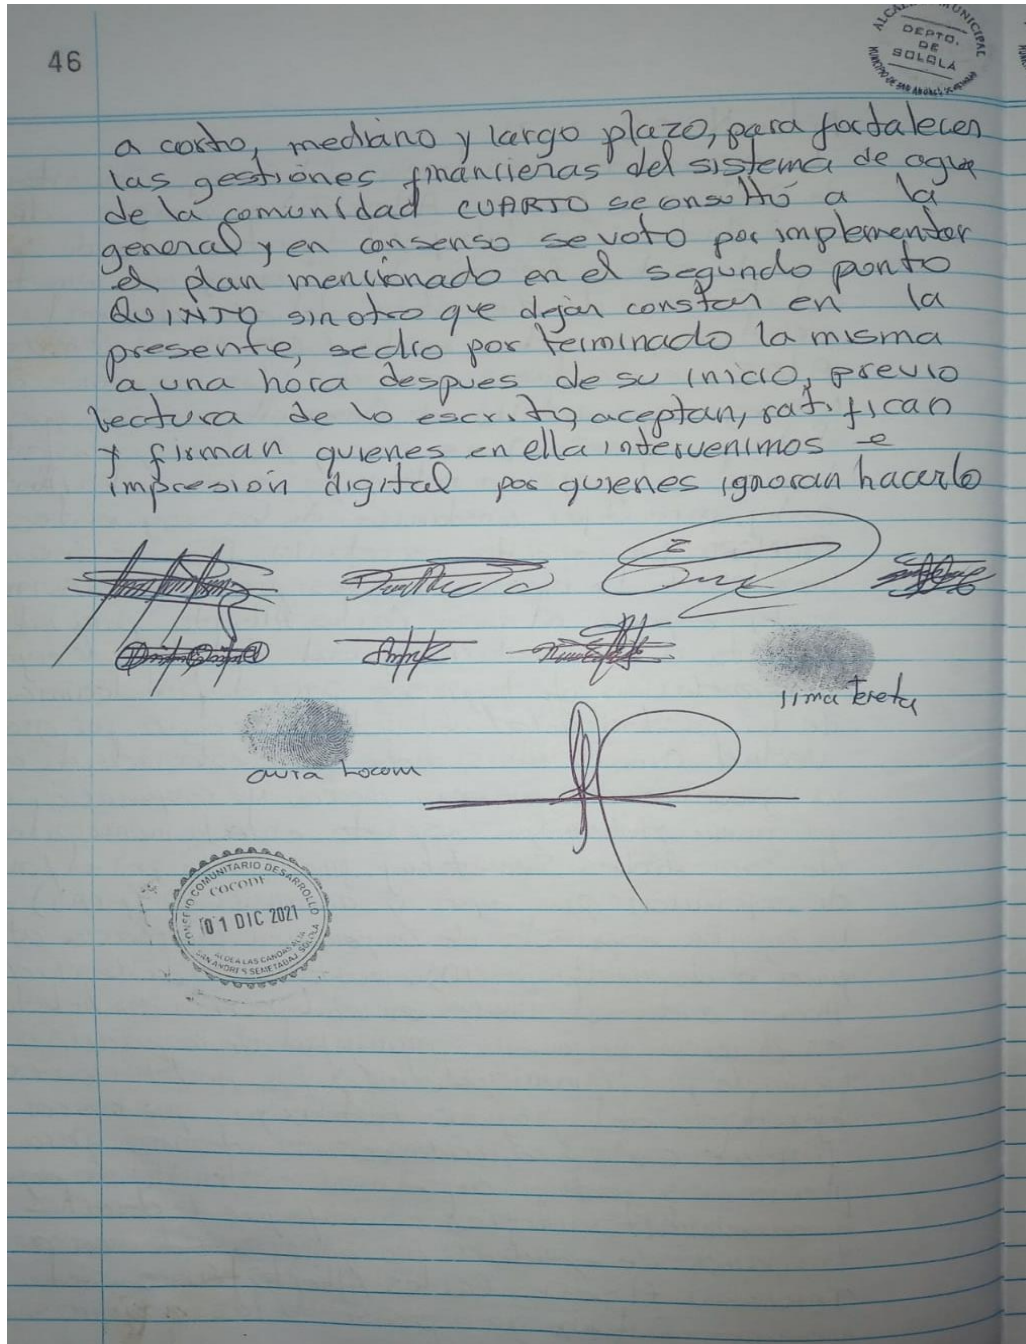 46
ALCALDIA MUNICIPAL
DEPTO.
DE
SOLOLA
MUNICIPIO DE SAN ANDRES
a corto, mediano y largo plazo, para fortalecer
las gestiones financieras del sistema de agua
de la comunidad CUARTO se consultó a la
general y en consenso se voto por implementar
el plan mencionado en el segundo punto
QUINTO sin otro que dejan constan en la
presente, se dio por terminado la misma
a una hora despues de su inicio, previo
lectura de lo escrito, aceptan, ratifican
y firman quienes en ella intervenimos e
impresión digital por quienes ignoran hacerlo
CONSEJO COMUNITARIO DESARROLLO
COCODE
01 DIC 2021
ALDEA LAS CANOAS ALTA
SAN ANDRES SEMETABAJ, SOLOLA